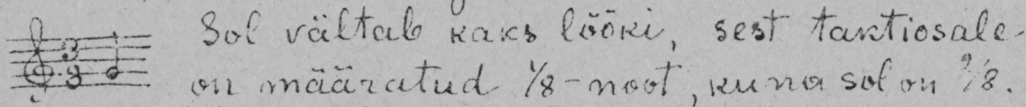 Sol vältab kaks lööki, sest taktiosale
on määratud 1/8-noot, kuna sol on 2/8.